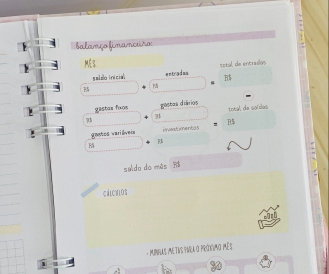 balanço financeiro:
MÊS
saldo inicial entradas total de entradas
R$ + R$ = R$
-
gastos fixos gastos diários total de saídas
R$ + R$ = R$
gastos variáveis investimentos
R$ + R$
saldo do mês R$
CÁLCULOS
- MINHAS METAS PARA O PRÓXIMO MÊS